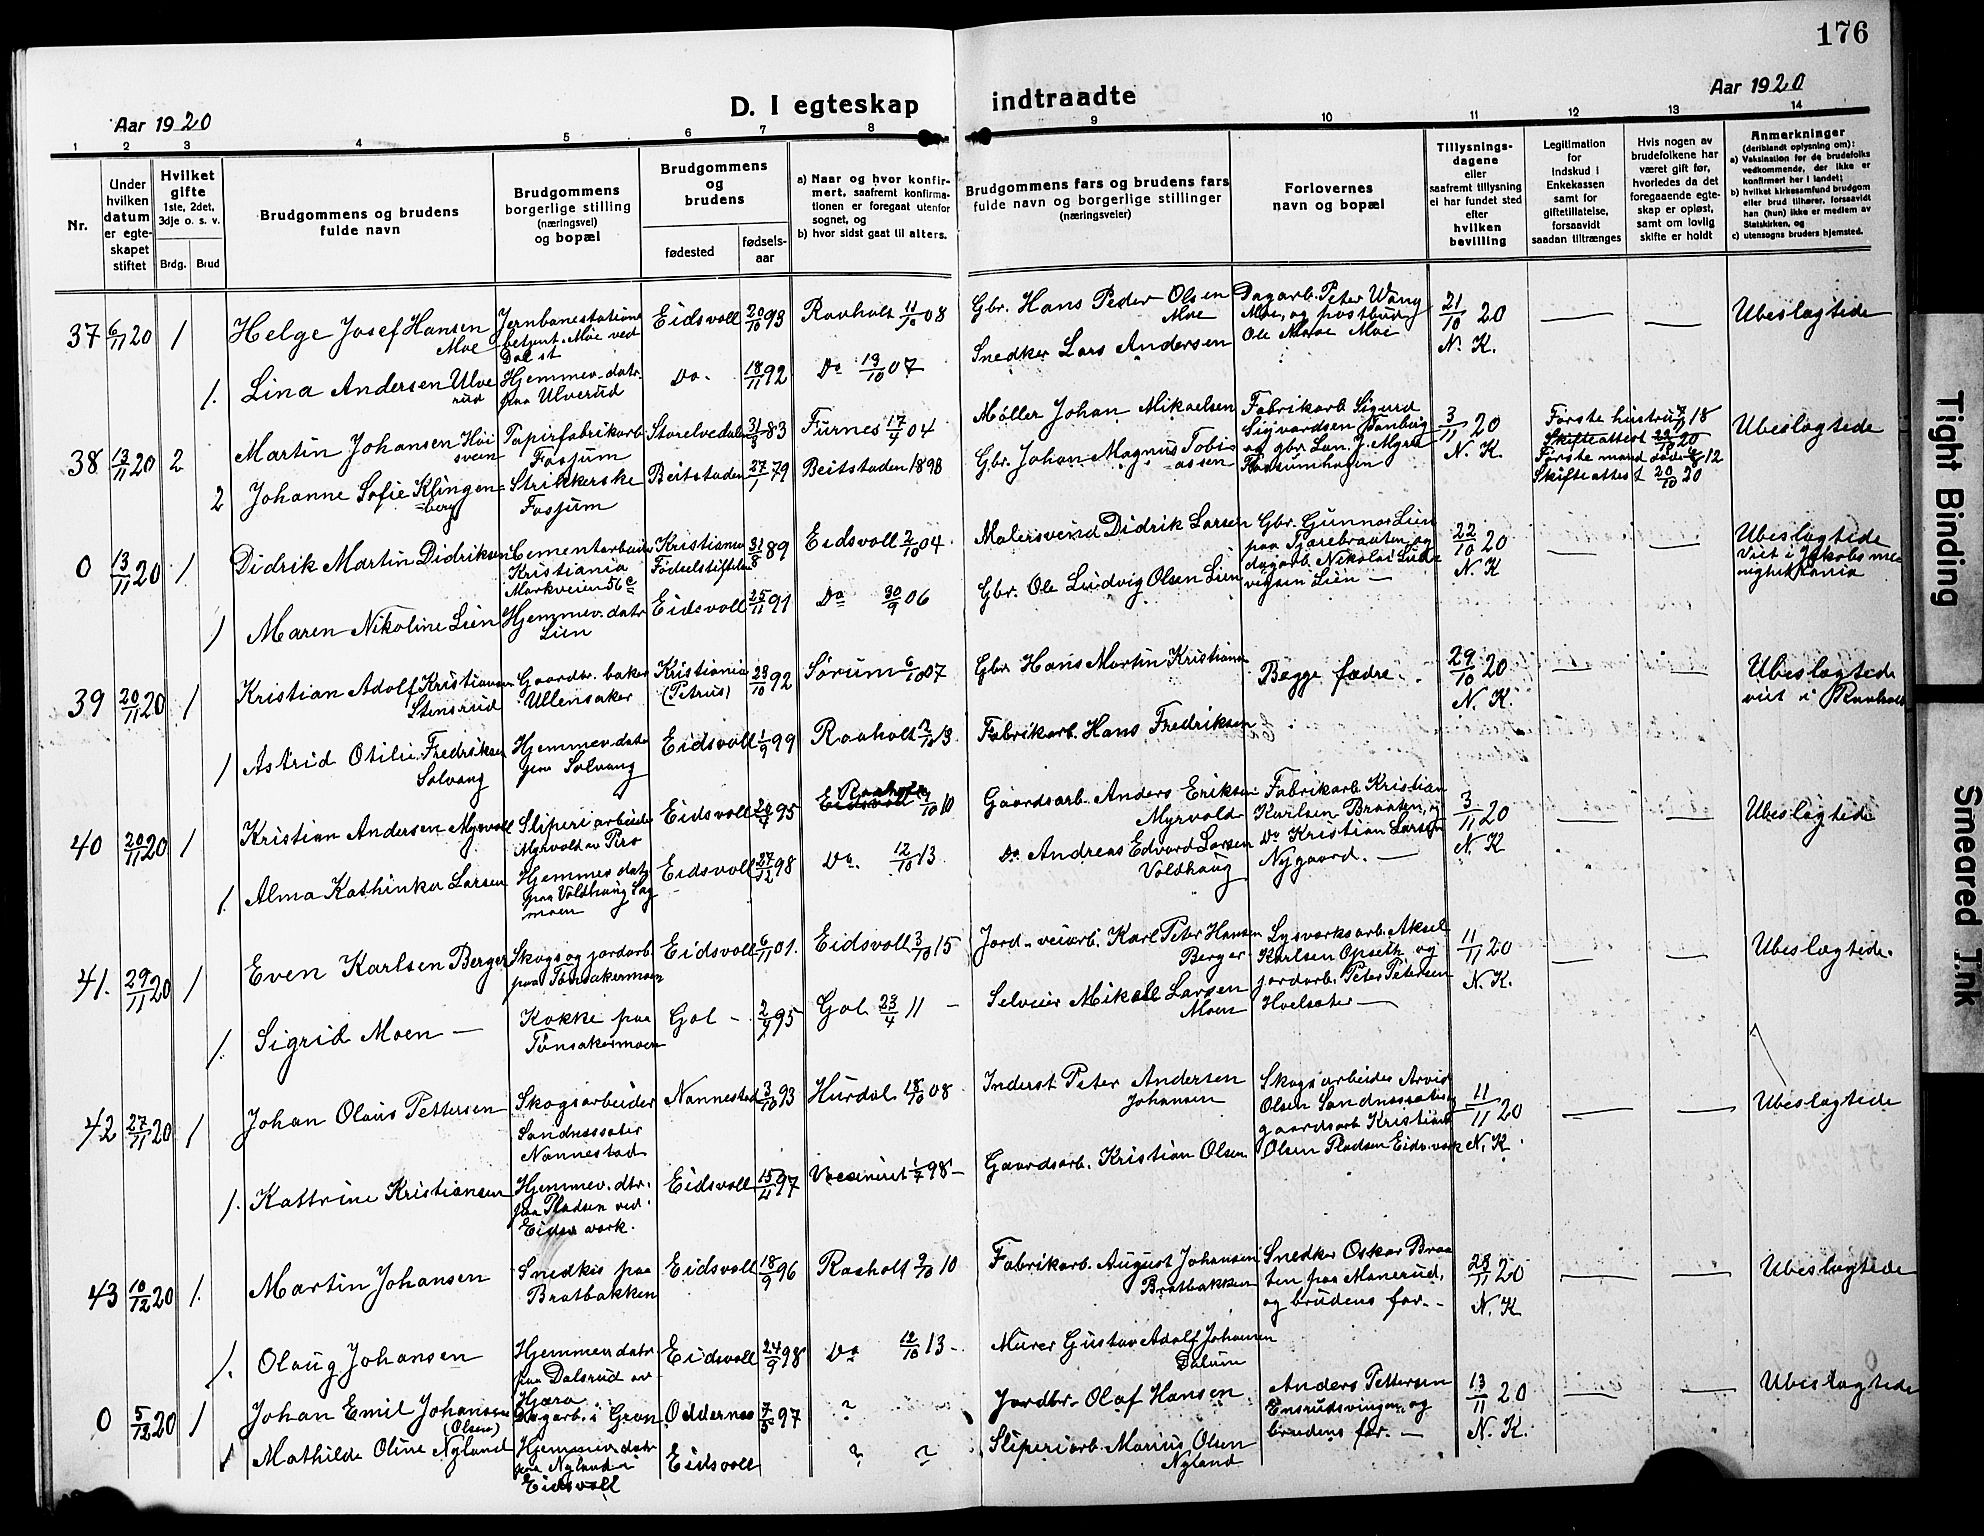 176
Aar 1920
D. I egteskap indtraadte
Aar 1920
1 2 3 4 5 6 7 8 9 10 11 12 13 14
Nr.
Under hvilken datum er egteskapet stiftet
Hvilket gifte 1ste, 2det, 3dje o. s. v.
Brdg. Brud
Brudgommens og brudens fulde navn
Brudgommens borgerlige stilling (næringsvei) og bopæl
Brudgommens og brudens
fødested
fødselsaar
a) Naar og hvor konfirmert, saafremt konfirmationen er foregaat utenfor sognet, og
b) hvor sidst gaat til alters.
Brudgommens fars og brudens fars fulde navn og borgerlige stillinger (næringsveier)
Forlovernes navn og bopæl
Tillysningsdagene eller saafremt tillysning ei har fundet sted efter hvilken bevilling
Legitimation for indskud i Enkekassen samt for giftetillatelse, forsaavidt saadan tiltrænges
Hvis nogen av brudefolkene har været gift før, hvorledes da det foregaaende egteskap er opløst, samt om lovlig skifte er holdt
Anmerkninger (deriblandt oplysning om):
a) Vaksination for de brudefolks vedkommende, der ikke er konfirmert her i landet;
b) hvilket kirkesamfund brudgom eller brud tilhører, forsaavidt han (hun) ikke er medlem av Statskirken, og
c) utensogns bruders hjemsted.
37 6/11 20 1 Helge Josef Hansen Moe Jernbanestations betjent. Moe ved Dal st Eidsvoll 20/10 93 Raaholt 11/10 08 Gbr. Hans Peder Olsen Moe Dagarb. Peter Wang Moe, og postbud Ole Moe 21/10 20 N. K. — — Ubeslægtede
1. Lina Andersen Ulverud Hjemmev. datr. paa Ulverud Do. 18/11 92 Do 19/10 07 Snedker Lars Andersen
38 13/11 20 2 Martin Johansen Høisveen Papirfabrikarb. Fossum Storelvedalen 31/3 83 Furnes 17/4 04 Møller Johan Mikaelsen Fabrikarb. Sigurd Sigvardsen og gbr. 3/11 20 N. K. Første hustru 18 Skifteattest 20 Ubeslægtede
2 Johanne Sofie Klingenberg Strikkerske Fossum Beitstaden 27/1 79 Beitstaden 1893 Gbr. Johan Magnus Tobiassen Første mand død 12 Skifteattest 20/10 20
0 13/11 20 1 Didrik Martin Didriksen Cementarbeider Kristiania Markveien 56 c Kristiania Fødselstiftelse 31/8 89 Eidsvoll 2/10 04 Malersvend Didrik Larsen Gbr. Gunnar Lien paa Tjærebraaten og dagarb. Nikolai Ludvigsen Lien — 22/10 20 N. K — — Ubeslægtede Viet i Jakobs menighet Kr.ania
1 Maren Nikoline Lien Hjemmev. datr Lien Eidsvoll 25/11 91 Do 30/9 06 Gbr. Ole Ludvig Olsen Lien
39 20/11 20 1 Kristian Adolf Kristiansen Stensrud Gaardbr. Ullensaker Kristiania (Petrus) 23/10 92 Sørum 6/10 07 Gbr Hans Martin Kristiansen Begge fædre 29/10 20 N. K. — — Ubeslægtede viet i Raaholt
1 Astrid Otilie Fredriksen Solvang Hjemmev. datr Solvang Eidsvoll 1/9 99 Raaholt 12/10 13 Fabrikarb. Hans Fredriksen
40 20/11 20 1 Kristian Andersen Myrvold Sliperiarbeider Myrvold Eidsvoll 95 Raaholt 10 Gaardsarb. Anders Eriksen Myrvold Fabrikarb Kristian Karlsen Braaten, og Do Kristian Larsen Nygaard. — 3/11 20 N. K — — Ubeslægtede
1. Alma Kathinka Larsen Hjemmev. datr paa Voldhaug Sagmoen Eidsvoll 27/12 98 Do. 12/10 13 Do Andreas Edvard Larsen Voldhaug
41. 29/11 20 1 Even Karlsen Berger Skogs og jordarb. paa Tønsakermoen Eidsvoll 6/11 01. Eidsvoll 3/10 15 Jord- veiarb. Karl Peter Hansen Berger Lysverksarb. Aksel Karlsen Opseth og jordarb. Peter Petersen Hvelsæter — 11/11 20 N. K. — — Ubeslægtede.
1. Sigrid Moen — Kokke paa Tønsakermoen Gol — 2/4 95 Gol. 23/4 11 — Selveier Mikael Larsen Moen
42 27/11 20 1 Johan Olaus Pettersen Skogsarbeider Sandnessæter Nannestad Nannestad 3/10 93 Hurdal 18/10 08 Inderst Peter Andersen Johansen Skogsarbeider Arvid Olsen gaardsarb Kristian Olsen Pladsen Eids.verk 11/11 20 N. K. — — Ubeslægtede
1. Kattrine Kristiansen Hjemmev. dtr. paa Pladsen ved Eidsv verk. Eidsvoll 15/4 97 Vaccineret 1/7 98 — Gaardsarb. Kristian Olsen
43 10/12 20 1. Martin Johansen Snedker paa Bratbakken Eidsvoll 18/9 96 Raaholt 9/10 10 Fabrikarb. August Johansen Bratbakken Snedker Oskar Braaten paa Manerud, og brudens far. — 28/11 20 N. K — — Ubeslægtede
1. Olaug Johansen Hjemmev datr paa Dalsrud av Hjæra Eidsvoll 24/9 98 Do 12/10 13. Murer Gustav Adolf Johansen Dalum
0 5/12 20 1 Johan Emil Johansen (Olsen) Dagarb. i Gran Oddernes 7/5 97 ? Jordbr. Olaf Hansen Anders Pettersen Ensrudsvingen, og brudens far. — 13/11 20 N. K. — — Ubeslægtede
1 Mathilde Oline Nyland Hjemmev. datr paa Nyland i Eidsvoll Eidsvoll ? ? Sliperiarb. Marius Olsen Nyland
Tight Binding
Smeared Ink